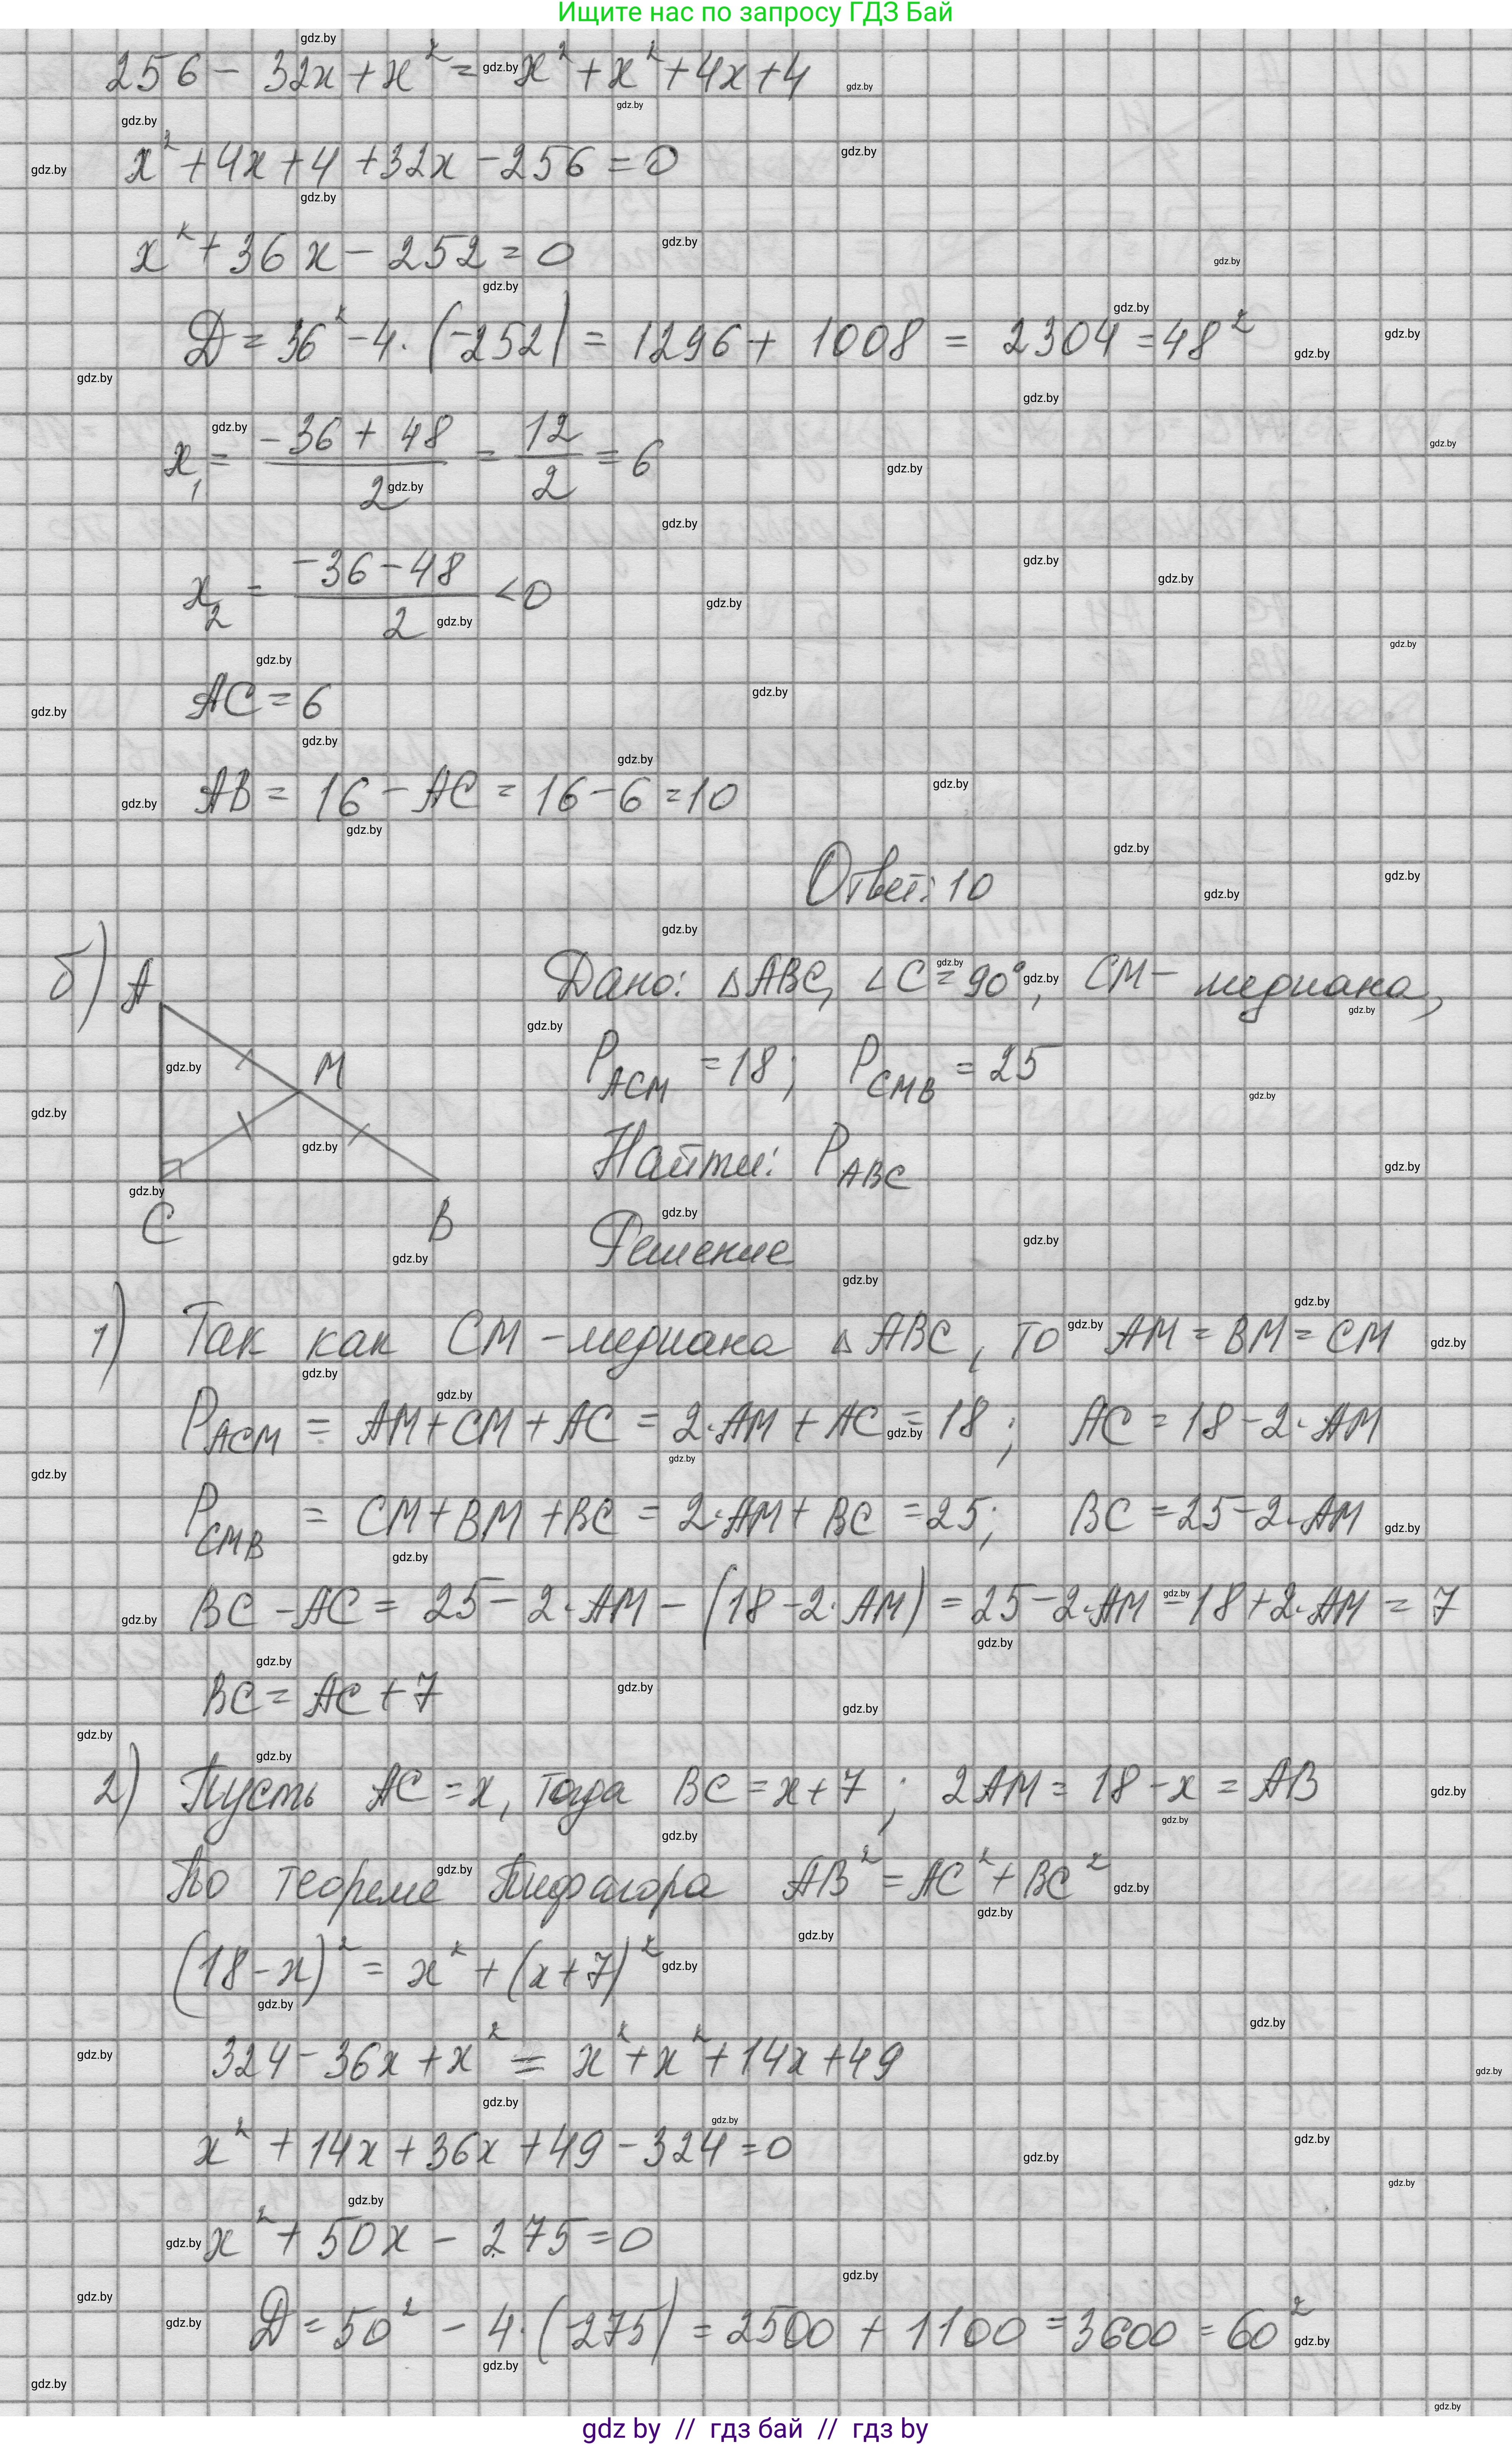 Ищите нас по запросу ГДЗ Бай
256 - 32x + x² = x² + x² + 4x + 4
x² + 4x + 4 + 32x - 256 = 0
x² + 36x - 252 = 0
D = 36² - 4 · (-252) = 1296 + 1008 = 2304 = 48²
x₁ = (-36 + 48)/2 = 12/2 = 6
x₂ = (-36 - 48)/2 < 0
AC = 6
AB = 16 - AC = 16 - 6 = 10
Ответ: 10
б) A M C B
Дано: △ABC, ∠C = 90°, CM - медиана,
P_ACM = 18; P_CMB = 25
Найти: P_ABC
Решение
1) Так как CM - медиана △ABC, то AM = BM = CM
P_ACM = AM + CM + AC = 2·AM + AC = 18; AC = 18 - 2·AM
P_CMB = CM + BM + BC = 2·AM + BC = 25; BC = 25 - 2·AM
BC - AC = 25 - 2·AM - (18 - 2·AM) = 25 - 2·AM - 18 + 2·AM = 7
BC = AC + 7
2) Пусть AC = x, тогда BC = x + 7; 2AM = 18 - x = AB
По теореме Пифагора AB² = AC² + BC²
(18 - x)² = x² + (x + 7)²
324 - 36x + x² = x² + x² + 14x + 49
x² + 14x + 36x + 49 - 324 = 0
x² + 50x - 275 = 0
D = 50² - 4 · (-275) = 2500 + 1100 = 3600 = 60²
gdz by // гдз бай // гдз by